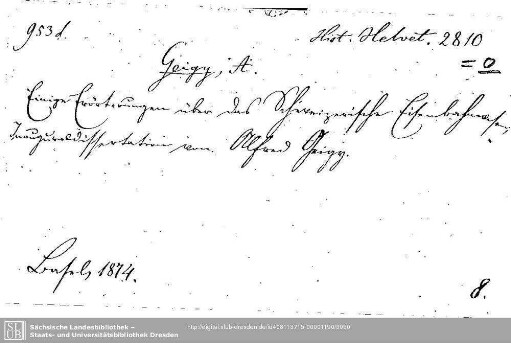 953d.
Hist. Helvet. 2810
= 0
Geigy, A.
Einige Erörterungen über das Schweizerische Eisenbahnwesen,
Inauguraldissertation von Alfred Geigy.
Basel, 1874.
8.
SLUB
Sächsische Landesbibliothek –
Staats- und Universitätsbibliothek Dresden